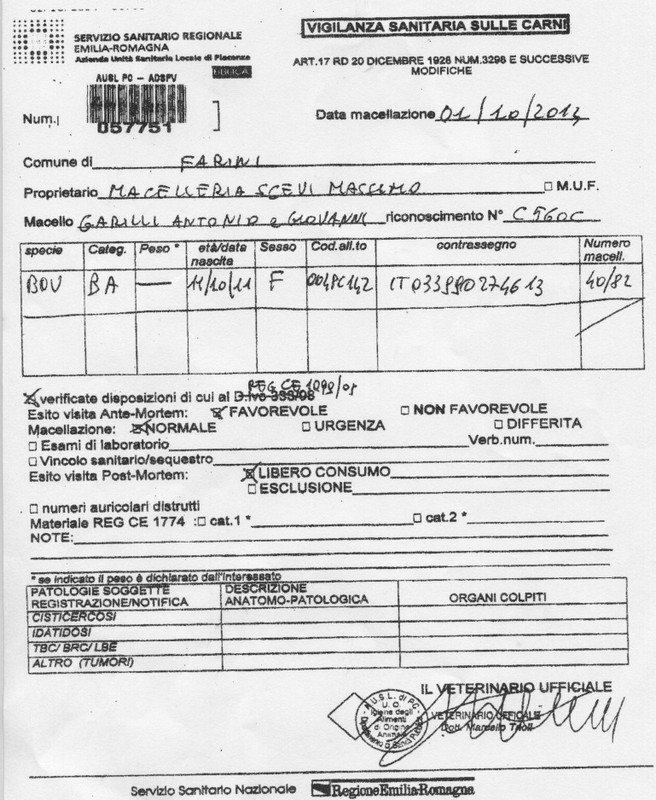 SERVIZIO SANITARIO REGIONALE
EMILIA-ROMAGNA
Azienda Unità Sanitaria Locale di Piacenza
VIGILANZA SANITARIA SULLE CARNI
ART.17 RD 20 DICEMBRE 1928 NUM.3298 E SUCCESSIVE
MODIFICHE
AUSL PC - ADSPV
Num.
057751
Data macellazione 01/10/2013
Comune di FARINI
Proprietario MACELLERIA SCEVI MASSIMO □ M.U.F.
Macello GARILLI ANTONIO e GIOVANNI riconoscimento N° C560C
specie Categ. Peso * età/data nascita Sesso Cod.all.to contrassegno Numero macell.
BOV BA — 11/10/11 F 004PC142 IT033990274613 40/82
REG CE 1099/09
☒ verificate disposizioni di cui al D.lvo 333/98
Esito visita Ante-Mortem: ☒ FAVOREVOLE □ NON FAVOREVOLE
Macellazione: ☒ NORMALE □ URGENZA □ DIFFERITA
□ Esami di laboratorio Verb.num.
□ Vincolo sanitario/sequestro
Esito visita Post-Mortem: ☒ LIBERO CONSUMO
□ ESCLUSIONE
□ numeri auricolari distrutti
Materiale REG CE 1774 :□ cat.1 * □ cat.2 *
NOTE:
* se indicato il peso è dichiarato dall'interessato
PATOLOGIE SOGGETTE REGISTRAZIONE/NOTIFICA DESCRIZIONE ANATOMO-PATOLOGICA ORGANI COLPITI
CISTICERCOSI
IDATIDOSI
TBC/ BRC/ LBE
ALTRO (TUMORI)
IL VETERINARIO UFFICIALE
A.U.S.L. di PC
U.O.
Igiene degli
Alimenti
di Origine
Animale
VETERINARIO UFFICIALE
Dott. Marcello
Servizio Sanitario Nazionale RegioneEmilia-Romagna